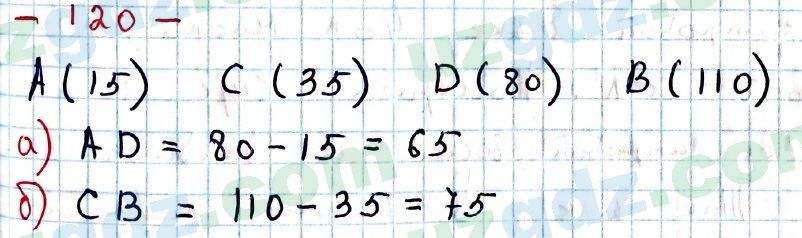 - 120 -
A (15) C (35) D (80) B (110)
а) AD = 80 - 15 = 65
б) CB = 110 - 35 = 75